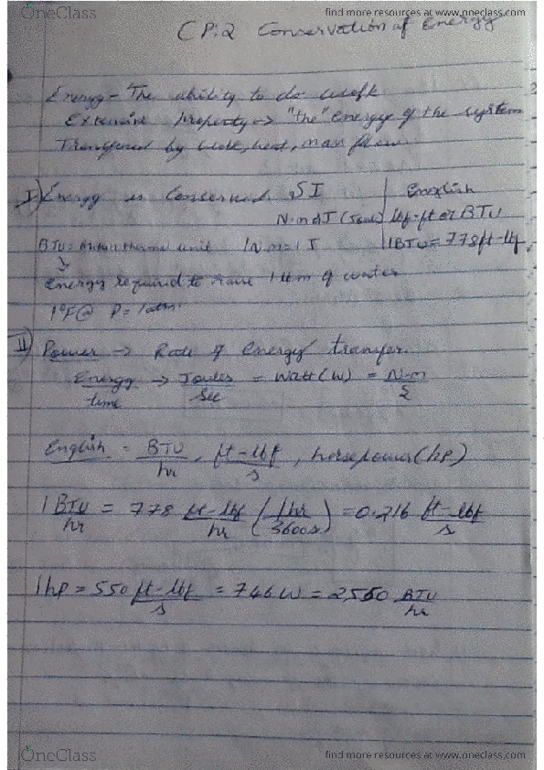 OneClass
find more resources at www.oneclass.com
CP:2 Conservation of Energy
Energy - The ability to do work
Extensive property → "the" energy of the system
Transferred by work, heat, mass flow
I) Energy is Conserved SI English
N·m or J (Joule) lbf·ft or BTU
BTU = British thermo unit 1 N·m = 1 J 1 BTU = 778 ft-lbf
Energy required to raise 1 lbm of water
1°F @ P = 1 atm.
II) Power → Rate of Energy transfer.
Energy/time → Joules/sec = Watt (W) = N·m/s
English - BTU/hr, ft-lbf/s, horsepower (hp)
1 BTU/hr = 778 ft-lbf/hr (1hr/3600s) = 0.216 ft-lbf/s
1hp = 550 ft-lbf/s = 746 W = 2550 BTU/hr
OneClass
find more resources at www.oneclass.com